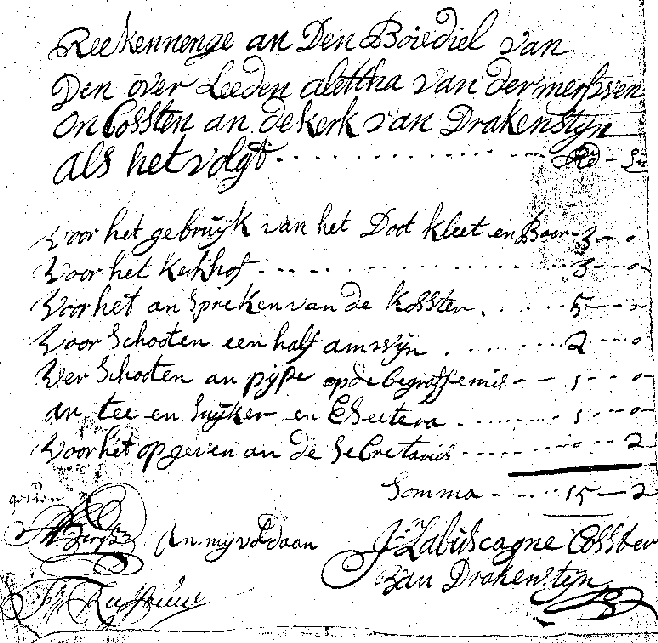 Reekennenge an Den Boediel van
Den over Leeden alettha van dermerssen
on Cossten an de kerk van Drakenstyn
als het volgt - - - - - - - Rd - St
Voor het gebruyk van het Dot kleet en Baer - 3 - 0
Voor het Kerkhof - - - - - - 3 - 0
Voor het an Spreken van de kossten - - - 5 - 0
Voor Schooten een half amwyn - - - 2 - 0
Ver Schooten an pype op de begraffenis - - 1 - 0
an tee en Suyker en Ettsetera - - - 1 - 0
Voor het opgeven an de Secretaris - - - 2
Somma - - - 15 - 2
An my voldaan
J: Labuscagne Cosster
Van Drakenstyn